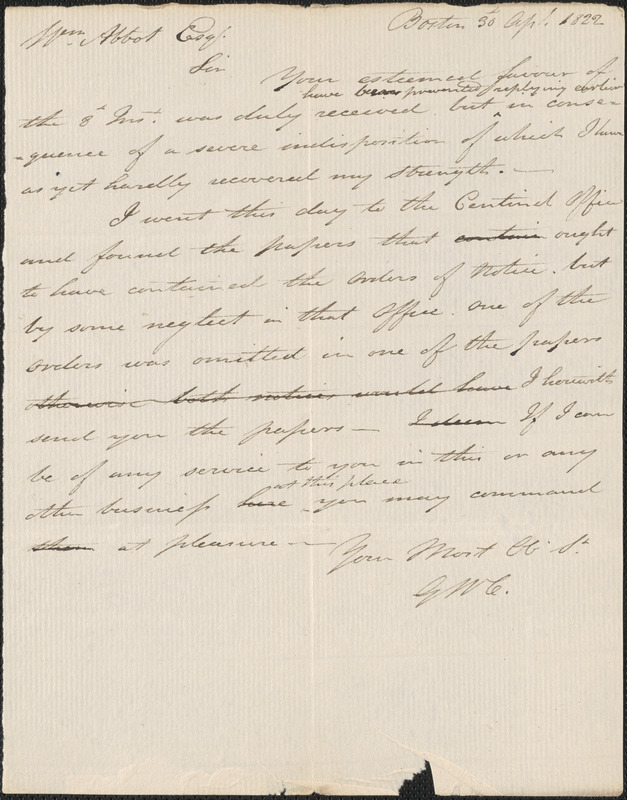 Wm Abbot Esqr.
Boston 30 Apl. 1822
Sir
Your esteemed favour of
have been prevented replying earlier
the 8th Inst. was duly received. but in conse-
-quence of a severe indisposition of which I have
as yet hardly recovered my strength. —
I went this day to the Centinel Office
and found the papers that contain ought
to have contained the orders of Notice. but
by some neglect in that Office. one of the
orders was omitted in one of the papers
otherwise both notices would have I herewith
send you the papers — I deem If I can
be of any service to you in this or any
at this place
other business here you may command
them at pleasure —
Your Most Ob St
GWC.